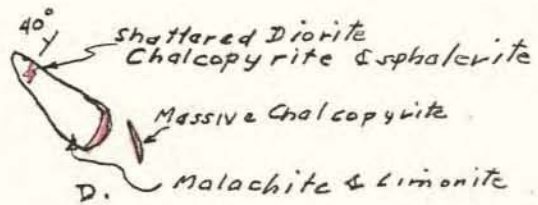 40°
Shattared Diorite
Chalcopyrite & sphalerite
Massive Chalcopyrite
Malachite & Limonite
D.